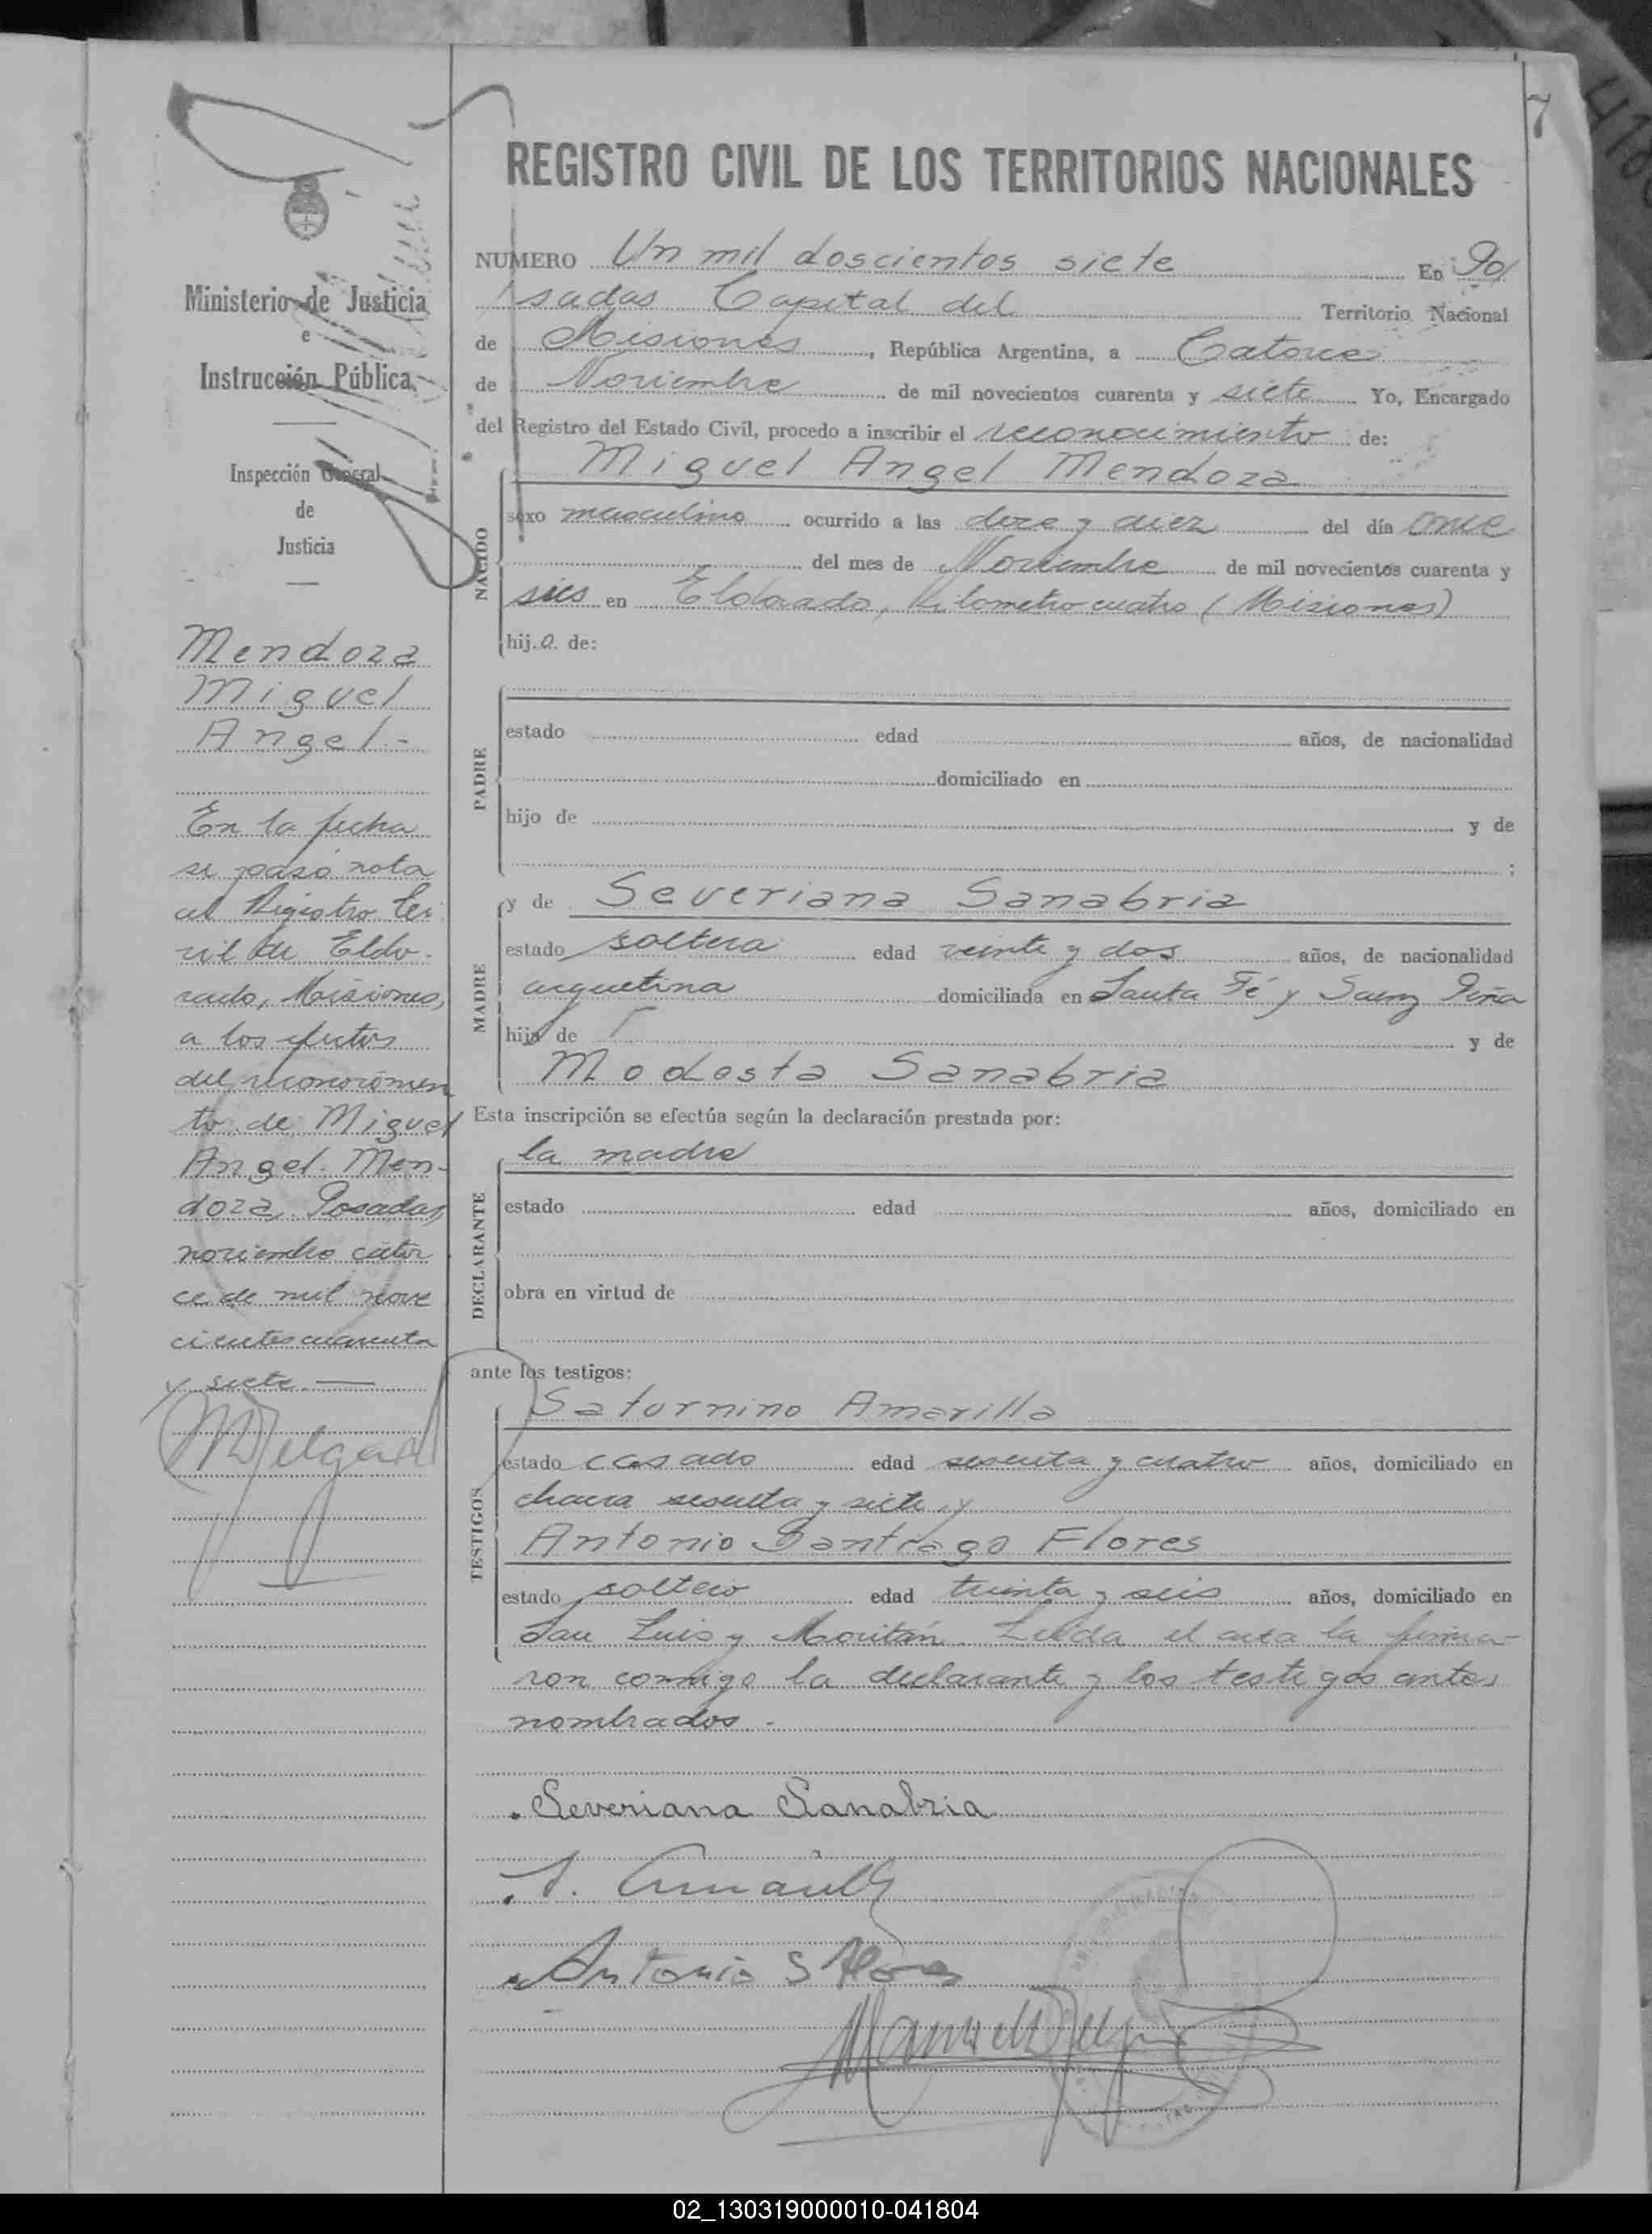 7
REGISTRO CIVIL DE LOS TERRITORIOS NACIONALES
Ministerio de Justicia
e
Instrucción Pública
Inspección General
de
Justicia
Mendoza
Miguel
Angel.-
En la fecha
se pasó nota
al Registro Ci
vil de Eldo-
rado, Misiones,
a los efectos
del reconocimien
to de Miguel
Angel Men-
doza, Posadas,
noviembre cator
ce de mil nove
cientos cuarenta
y siete.—
MDelgad
NUMERO Un mil doscientos siete En Po/
sadas Capital del Territorio Nacional
de Misiones, República Argentina, a Catorce
de Noviembre de mil novecientos cuarenta y siete Yo, Encargado
del Registro del Estado Civil, procedo a inscribir el reconocimiento de:
Miguel Angel Mendoza
NACIDO
sexo masculino ocurrido a las doce y diez del día once
del mes de Noviembre de mil novecientos cuarenta y
seis en Eldorado, Kilometro cuatro (Misiones)
hijo de:
PADRE
estado edad años, de nacionalidad
domiciliado en
hijo de y de
;
MADRE
y de Severiana Sanabria
estado soltera edad veinte y dos años, de nacionalidad
argentina domiciliada en Santa Fé y Saenz Peña
hija de y de
Modesta Sanabria
Esta inscripción se efectúa según la declaración prestada por:
DECLARANTE
la madre
estado edad años, domiciliado en
obra en virtud de
ante los testigos:
TESTIGOS
Saturnino Amarilla
estado casado edad sesenta y cuatro años, domiciliado en
chacra sesenta y siete, y
Antonio Santiago Flores
estado soltero edad treinta y seis años, domiciliado en
San Luis y Moritán. Leída el acta la firma-
ron conmigo la declarante y los testigos antes
nombrados.-
Severiana Sanabria
S. Amarilla
Antonio S Flores
02_130319000010-041804